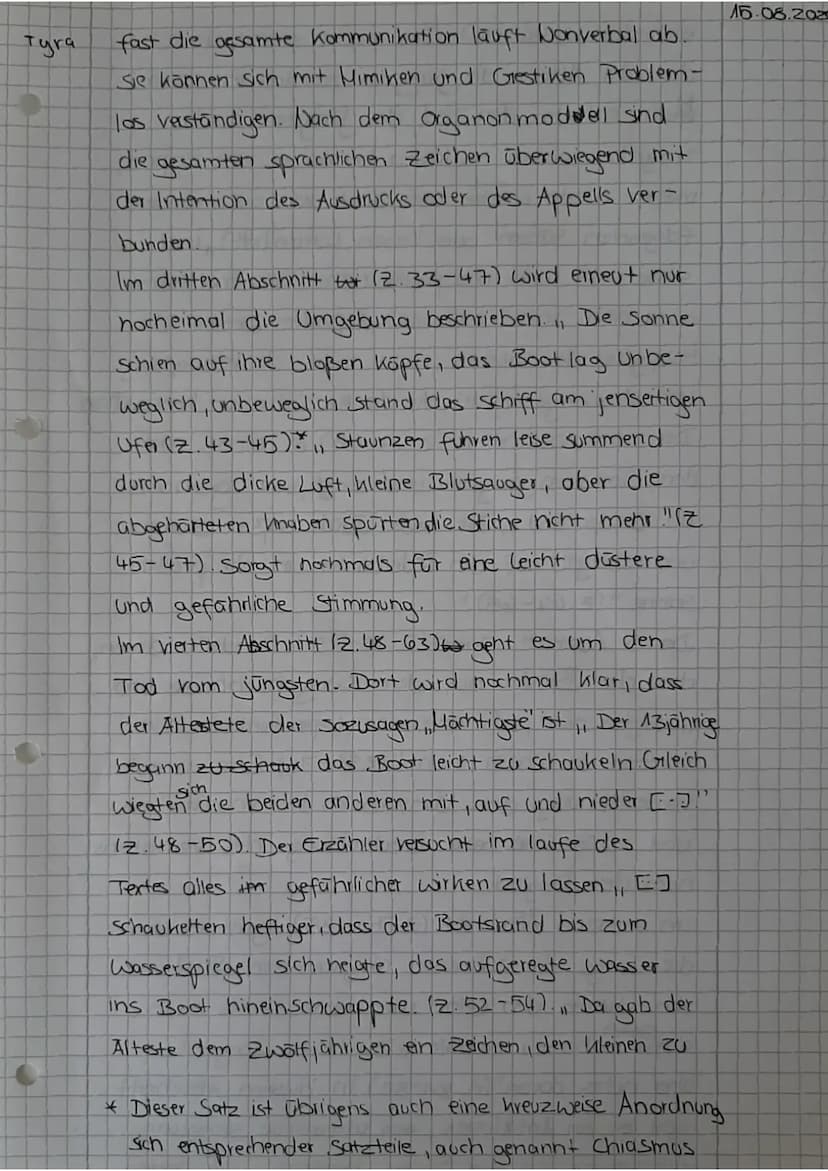 15.08.202
Tyra fast die gesamte Kommunikation läuft Nonverbal ab.
Sie können sich mit Mimiken und Gestiken Problem-
los verständigen. Nach dem Organonmodell sind
die gesamten sprachlichen Zeichen überwiegend mit
der Intention des Ausdrucks oder des Appells ver-
bunden.
Im dritten Abschnitt (Z. 33-47) wird erneut nur
nocheimal die Umgebung beschrieben „ Die Sonne
schien auf ihre bloßen Köpfe, das Boot lag Unbe-
weglich, unbeweglich stand das Schiff am jenseitigen
Ufer (Z. 43-45)"* „ Staunzen fuhren leise summend
durch die dicke Luft, kleine Blutsauger, aber die
abgehärteten Knaben spürten die Stiche nicht mehr "(Z
45-47). Sorgt nochmals für eine leicht düstere
und gefährliche Stimmung.
Im vierten Abschnitt (Z. 48-63) geht es um den
Tod vom jüngsten. Dort wird nochmal klar, dass
der Ältestete der Sozusagen „Mächtigste" ist „ Der 13jährige
begann zu schauk das Boot leicht zu schaukeln Gleich
wiegten sich die beiden anderen mit, auf und nieder [..]"
(Z. 48-50). Der Erzähler versucht im laufe des
Textes alles im gefährlicher wirken zu lassen „ [..]
Schaukelten heftiger, dass der Bootsrand bis zum
Wasserspiegel sich neigte, das aufgeregte Wasser
ins Boot hineinschwappte. (Z. 52-54). „ Da gab der
Älteste dem Zwölfjährigen ein Zeichen, den kleinen zu
* Dieser Satz ist übrigens auch eine kreuzweise Anordnung
sich entsprechender Satzteile, auch genannt Chiasmus